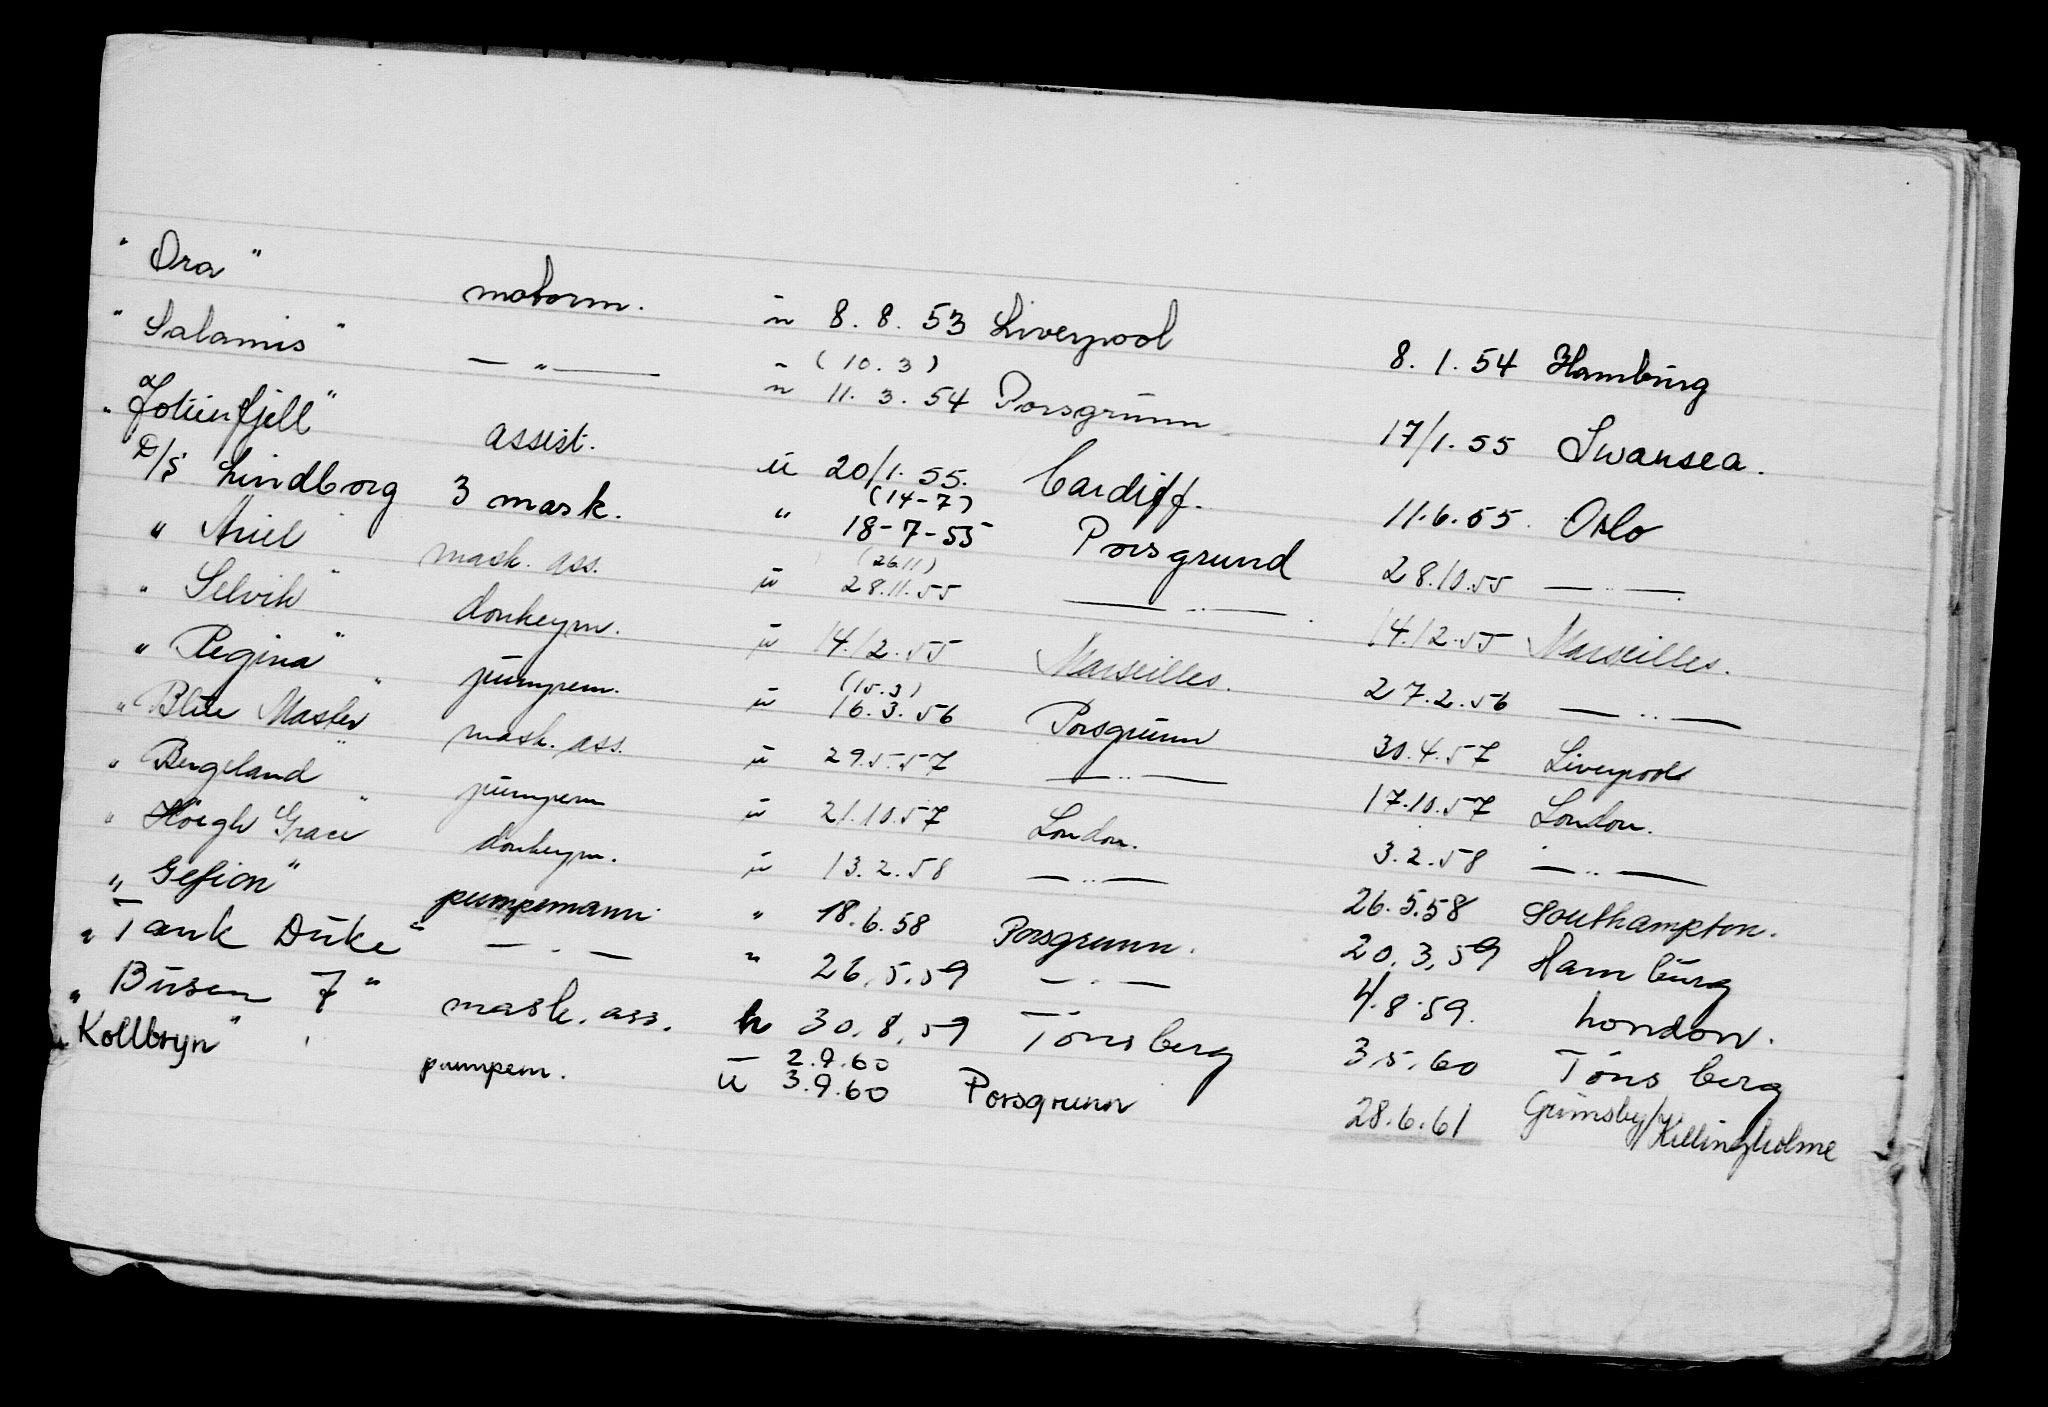 " Ora " motorm. u 8. 8. 53 Liverpool 8. 1. 54 Hamburg
" Salamis " — " — " (10. 3) u 11. 3. 54 Porsgrunn 17/1. 55 Swansea.
" Jotunfjell " assist. u 20/1. 55. Cardiff. 11.6.55. Oslo
D/S Lindborg 3 mask. " (14-7) 18-7-55 Porsgrund 28.10.55 — " —
" Ariel mask. ass. u (26.11) 28.11.55 — " — 14.12.55 Marseilles.
" Selvik " donkeym. u 14.12.55 Marseilles. 27.2.56 — " —
" Regina " pumpem. u (15.3) 16.3.56 Porsgrunn 30.4.57 Liverpool
" Blue Master " mask. ass. u 29.5.57 — " — 17.10.57 London.
" Bergeland " pumpem u 21.10.57 London. 3.2.58 — " —
" Höegh Grace " donkeym. u 13.2.58 — " — 26.5.58 Southampton.
" Gefion " pumpemann " 18.6.58 Porsgrunn. 20.3.59 Hamburg
" Tank Duke " — " — " 26.5.59 — " — 4.8.59. London.
" Busen 7 " mask. ass. h 30.8.59 Tönsberg 3.5.60 Tönsberg
" Kollbryn " pumpem. u 2.9.60 3.9.60 Porsgrunn 28.6.61 Grimsby/Killingholme